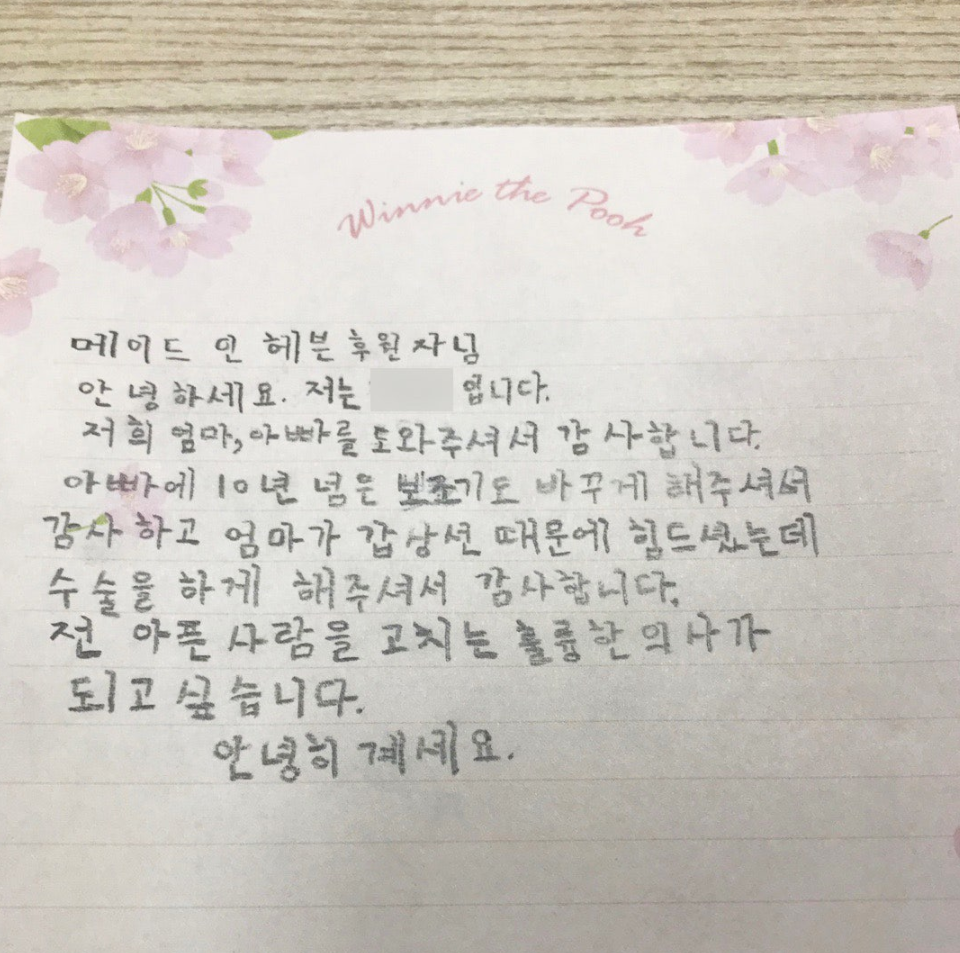 Winnie the Pooh
메이드 인 헤븐 후원자님
안녕하세요. 저는 입니다.
저희 엄마, 아빠를 도와주셔서 감사합니다.
아빠에 10년 넘은 보조기도 바꾸게 해주셔서
감사하고 엄마가 갑상선 때문에 힘드셨는데
수술을 하게 해주셔서 감사합니다.
전 아픈 사람을 고치는 훌륭한 의사가
되고 싶습니다.
안녕히 계세요.